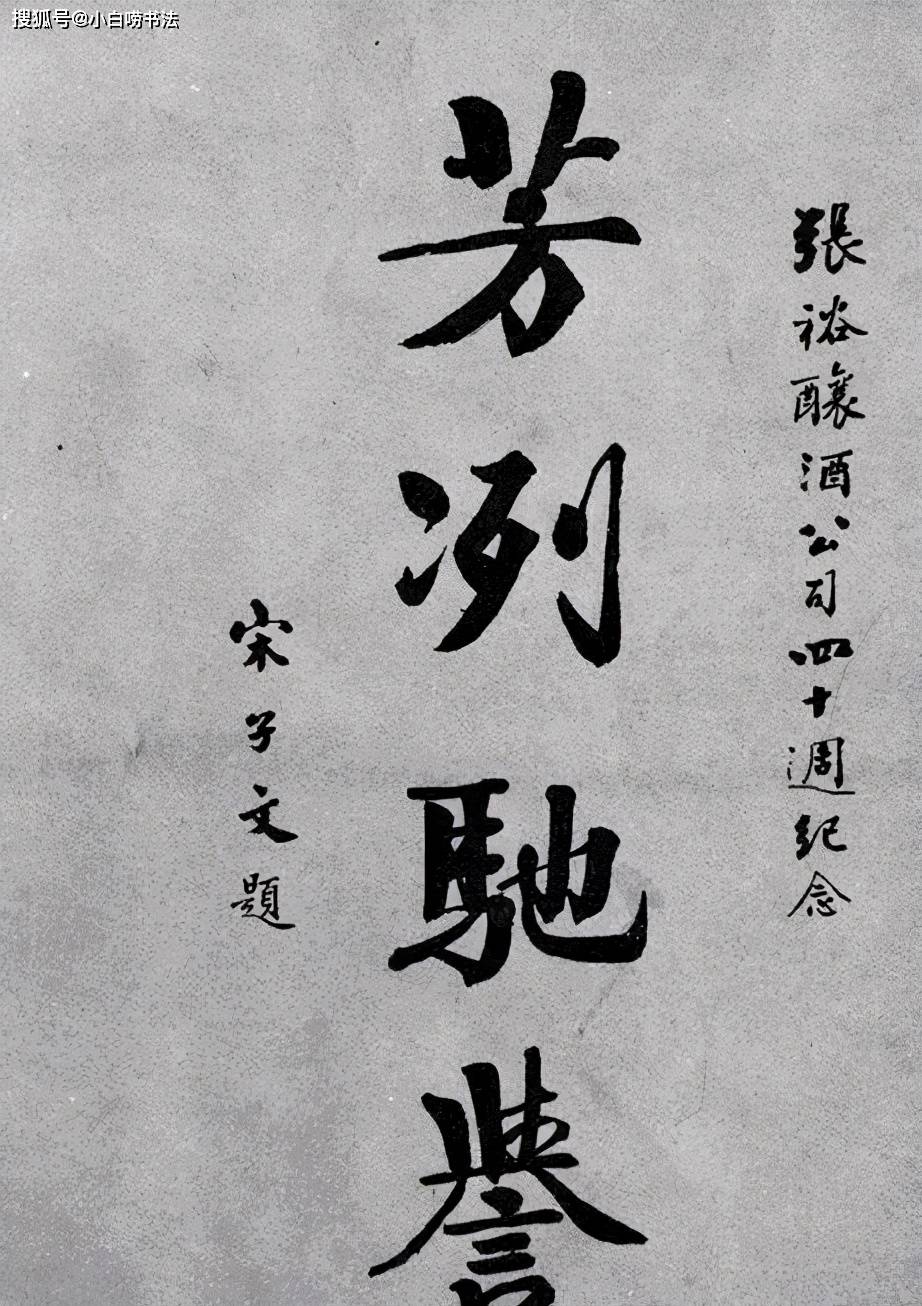 搜狐号@小白唠书法
張裕釀酒公司四十週紀念
芳冽馳譽
宋子文題